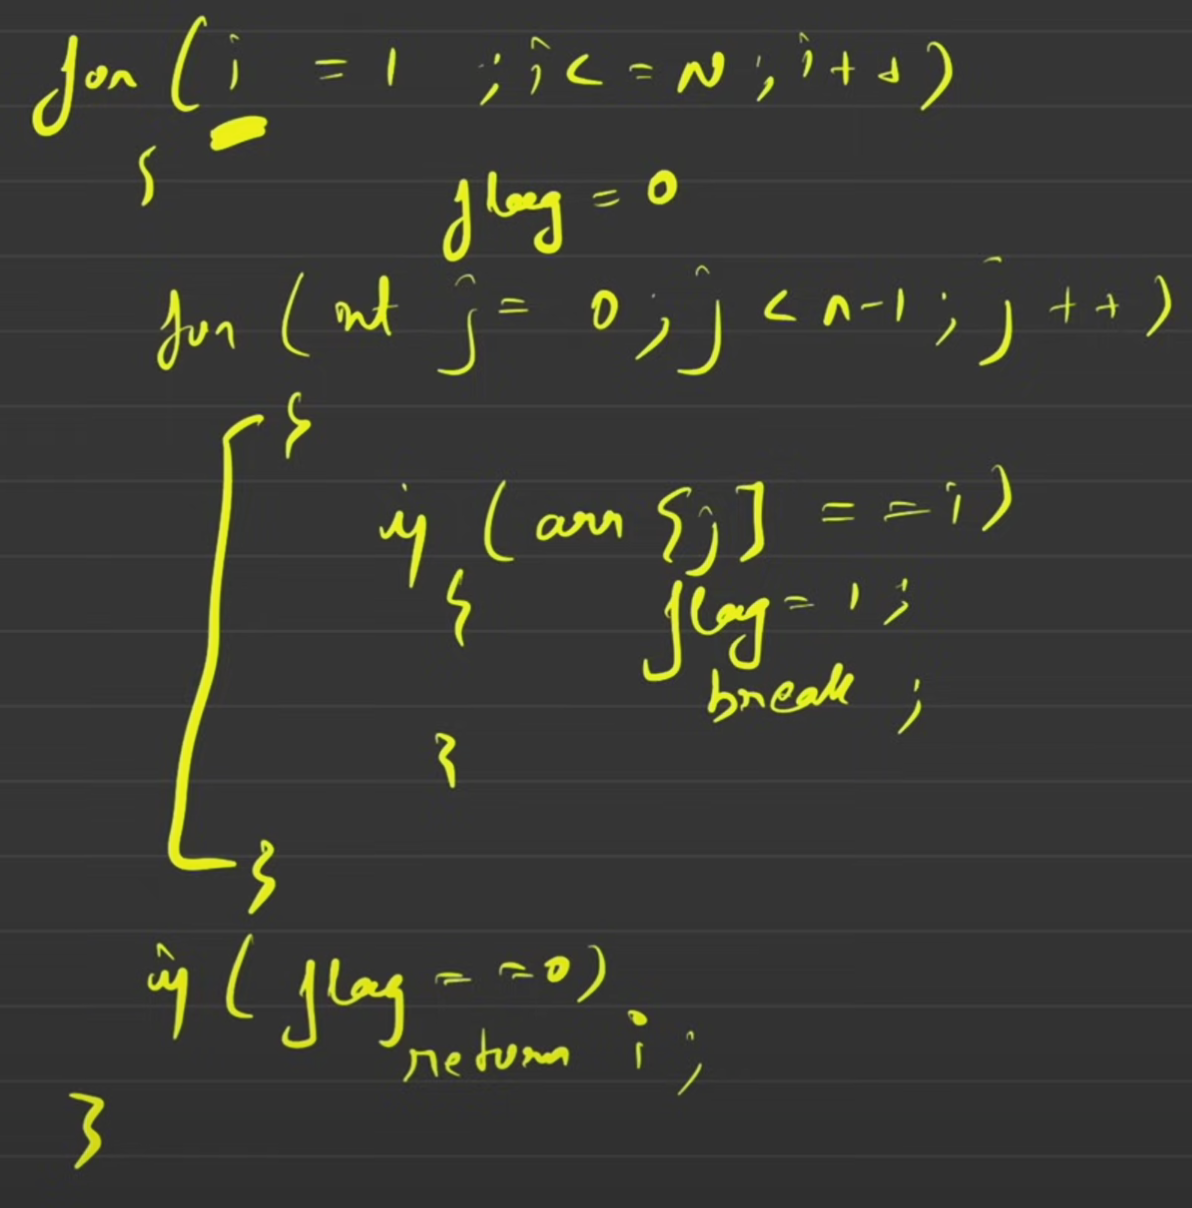 for (i = 1 ; i <= N ; i++)
{
flag = 0
for (int j = 0 ; j < n-1 ; j++)
{
if (arr [j] == i)
{
flag = 1 ;
break ;
}
}
if (flag == 0)
return i ;
}